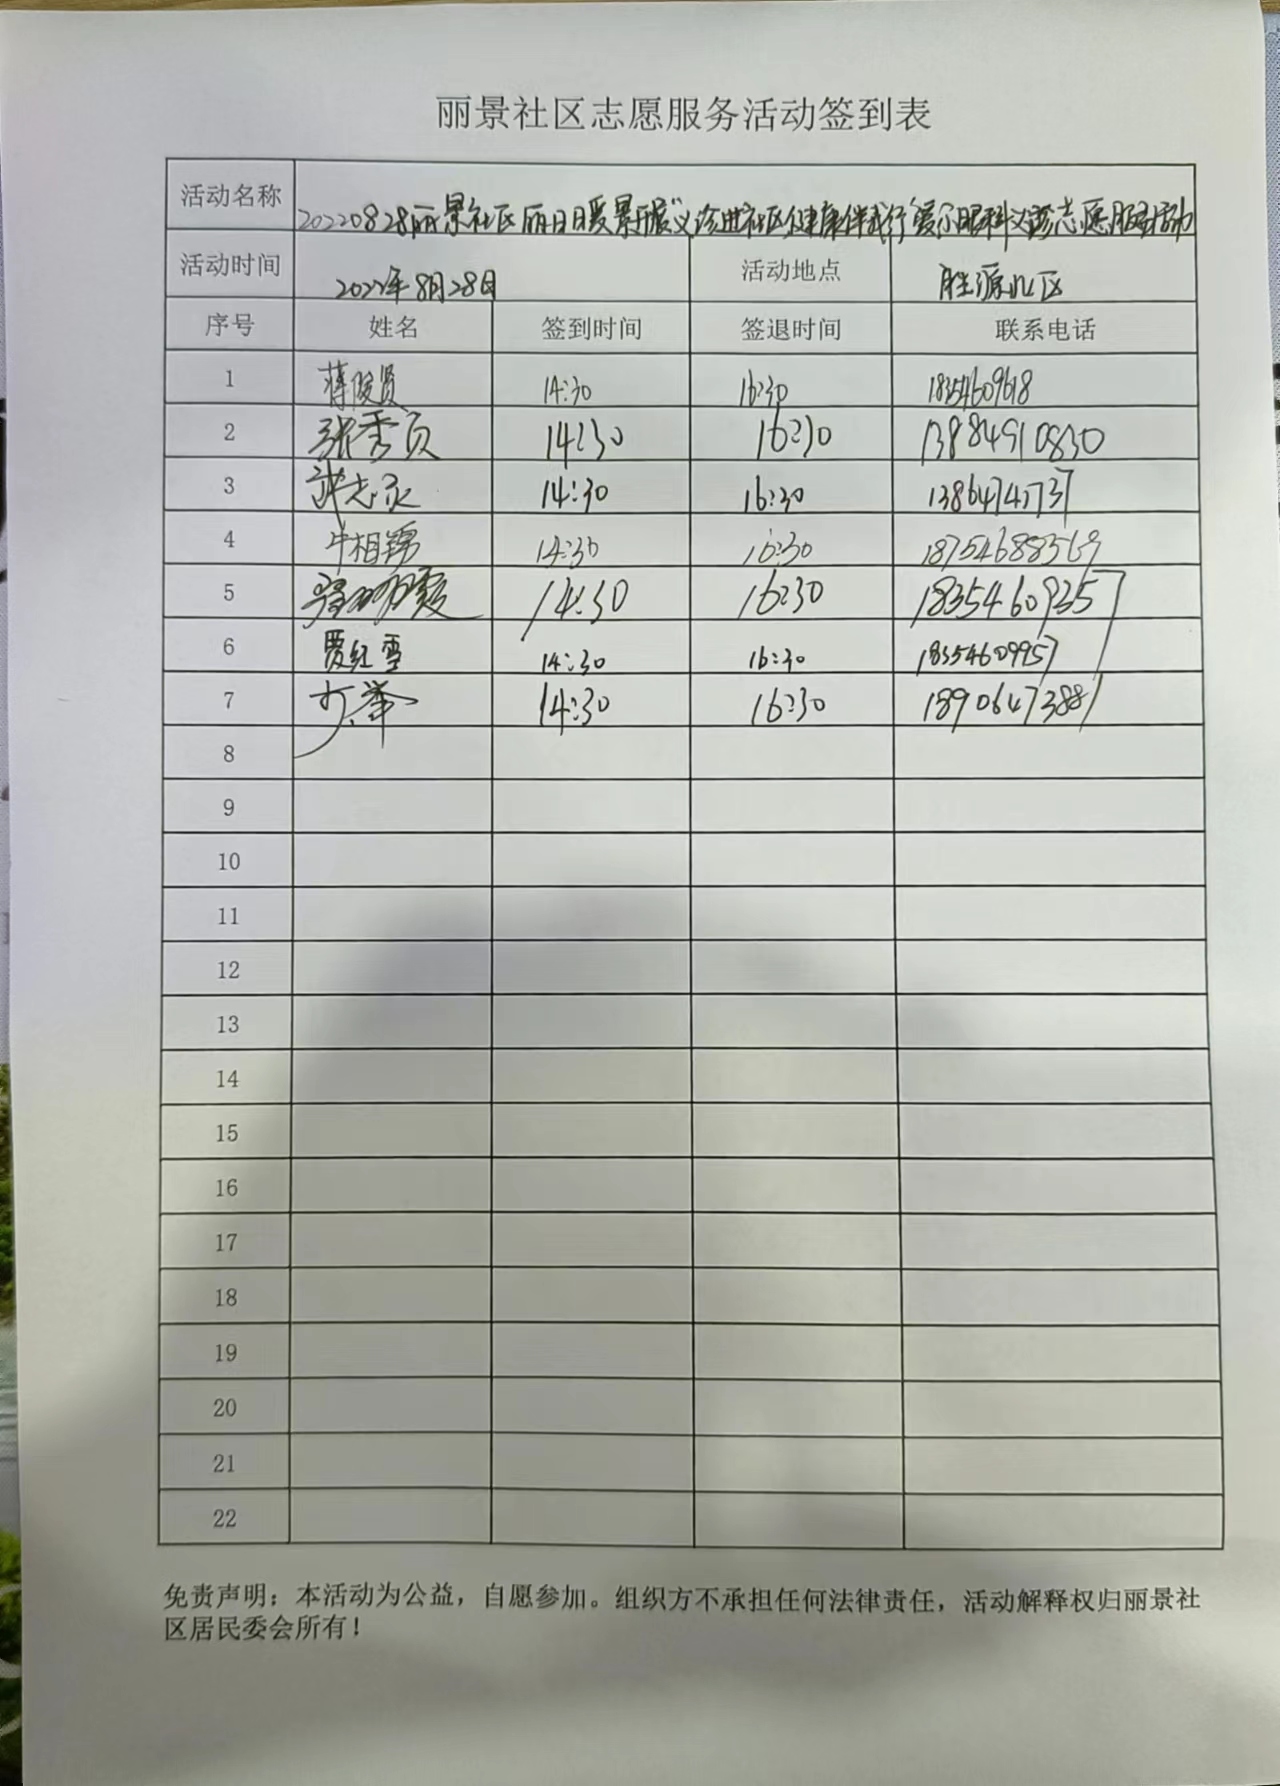 丽景社区志愿服务活动签到表
活动名称 20220828丽景社区丽日日暖景新展"义诊进社区健康伴我行"爱尔眼科义诊志愿服务活动
活动时间 2022年8月28日 活动地点 胜源北区
序号 姓名 签到时间 签退时间 联系电话
1 蒋俊贤 14:30 16:30 18354609618
2 张秀贞 14:30 16:30 13884910830
3 14:30 16:30
4 牛相锦 14:30 16:30 18754688569
5 14:30 16:30 18354609357
6 贾红雪 14:30 16:30 18354609957
7 14:30 16:30 18906473881
8
9
10
11
12
13
14
15
16
17
18
19
20
21
22
免责声明：本活动为公益，自愿参加。组织方不承担任何法律责任，活动解释权归丽景社
区居民委会所有！